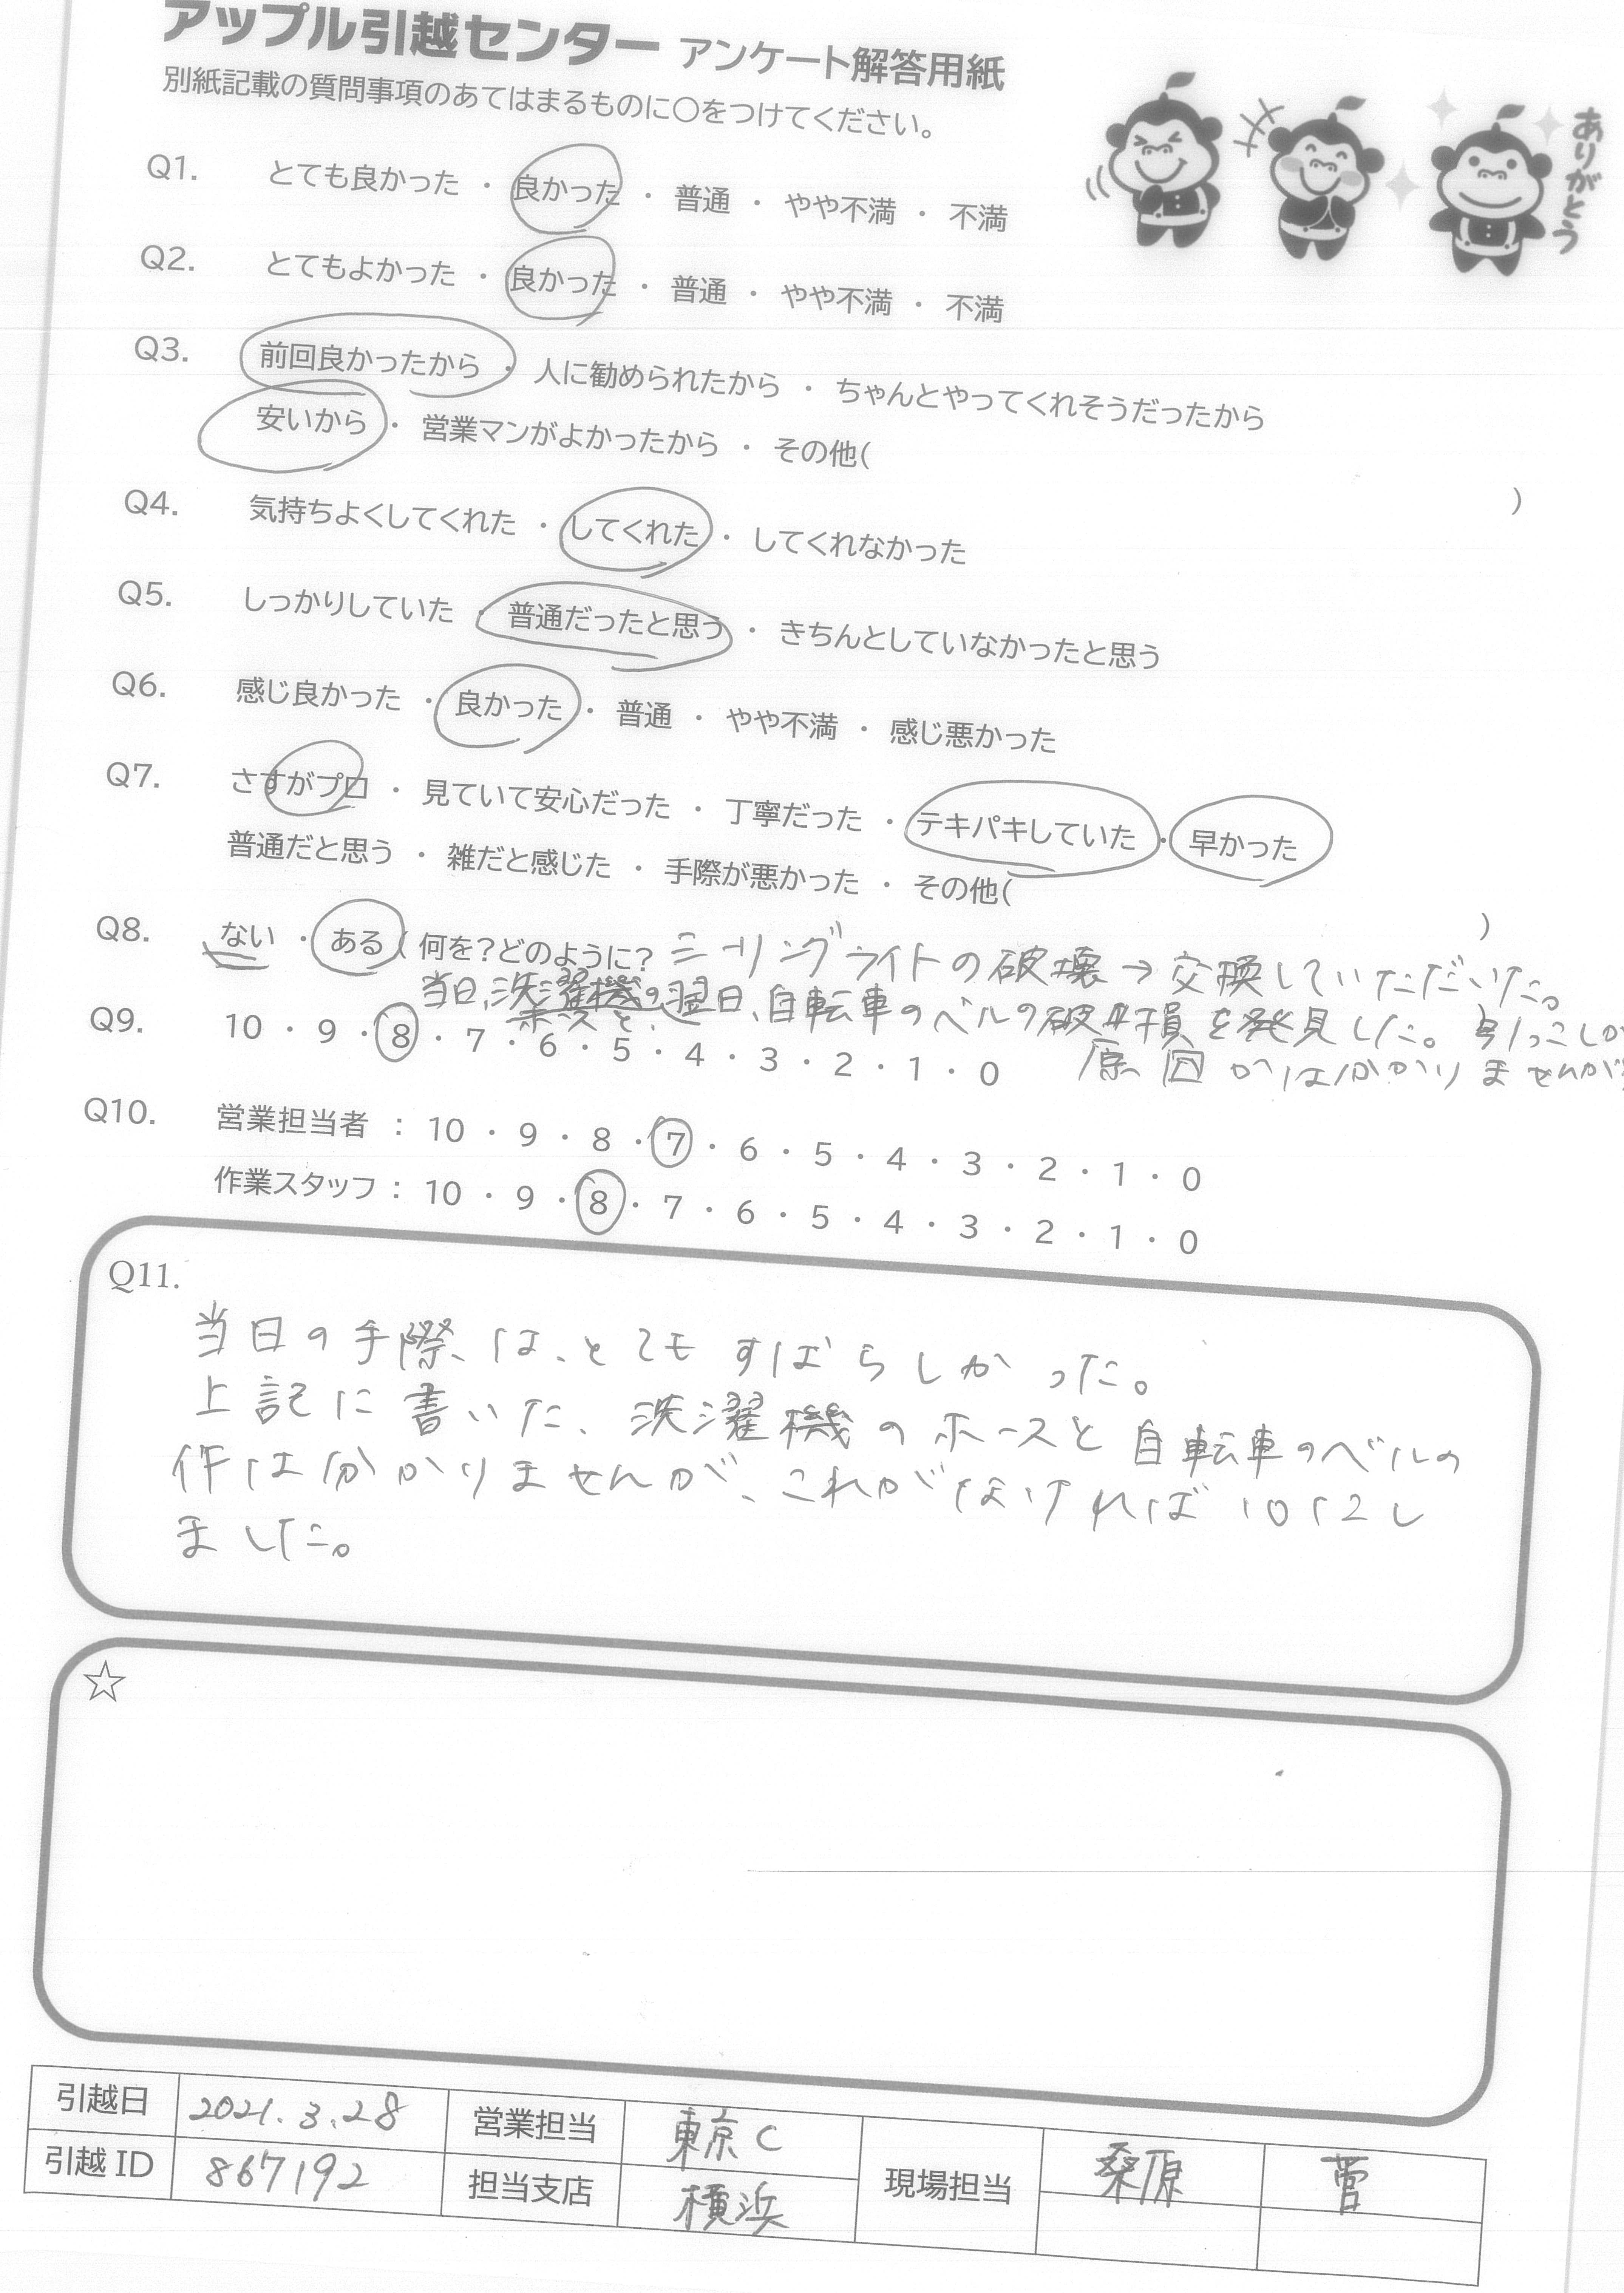 アップル引越センター アンケート解答用紙
別紙記載の質問事項のあてはまるものに○をつけてください。
ありがとう
Q1. とても良かった ・ 良かった ・ 普通 ・ やや不満 ・ 不満
Q2. とてもよかった ・ 良かった ・ 普通 ・ やや不満 ・ 不満
Q3. 前回良かったから ・ 人に勧められたから ・ ちゃんとやってくれそうだったから
安いから ・ 営業マンがよかったから ・ その他( )
Q4. 気持ちよくしてくれた ・ してくれた ・ してくれなかった
Q5. しっかりしていた ・ 普通だったと思う ・ きちんとしていなかったと思う
Q6. 感じ良かった ・ 良かった ・ 普通 ・ やや不満 ・ 感じ悪かった
Q7. さすがプロ ・ 見ていて安心だった ・ 丁寧だった ・ テキパキしていた ・ 早かった
普通だと思う ・ 雑だと感じた ・ 手際が悪かった ・ その他( )
Q8. ない ・ ある ( 何を?どのように? シーリングライトの破壊→交換していただいた。 )
当日、洗濯機の ホースと、翌日、自転車のベルの破損を発見した。引っこしが
原因かは分かりませんが
Q9. 10 ・ 9 ・ 8 ・ 7 ・ 6 ・ 5 ・ 4 ・ 3 ・ 2 ・ 1 ・ 0
Q10. 営業担当者 : 10 ・ 9 ・ 8 ・ 7 ・ 6 ・ 5 ・ 4 ・ 3 ・ 2 ・ 1 ・ 0
作業スタッフ : 10 ・ 9 ・ 8 ・ 7 ・ 6 ・ 5 ・ 4 ・ 3 ・ 2 ・ 1 ・ 0
Q11.
当日の手際は、とてもすばらしかった。
上記に書いた、洗濯機のホースと自転車のベルの
件は分かりませんが、これがなければ10にし
ました。
☆
引越日 2021.3.28 営業担当 東京C 現場担当 桑原 菅
引越ID 867192 担当支店 横浜